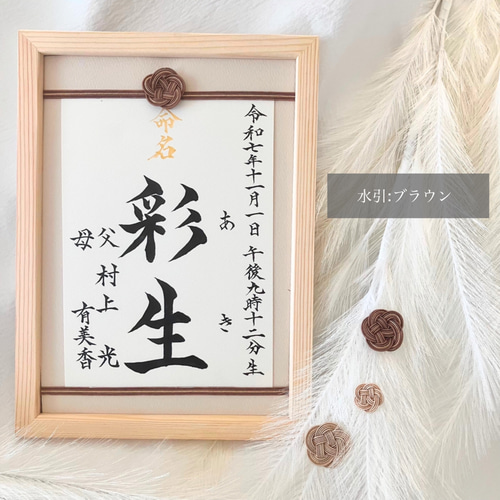 令和七年十一月一日 午後九時十二分生
命名
あき
彩生
父 村上 光
母 有美香
水引:ブラウン